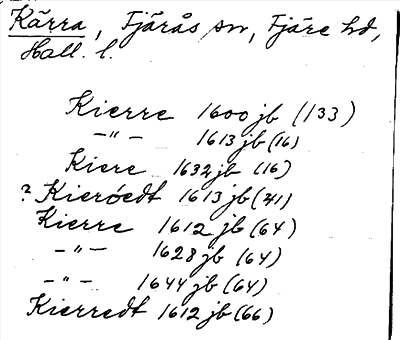 Kärra, Fjärås sn, Fjäre hd,
Hall. l.
Kierre 1600 jb (133)
—"— 1613 jb (16)
Kiere 1632 jb (16)
? Kieróedt 1613 jb (41)
Kierre 1612 jb (64)
—"— 1628 jb (64)
—"— 1644 jb (64)
Kierredt 1612 jb (66)